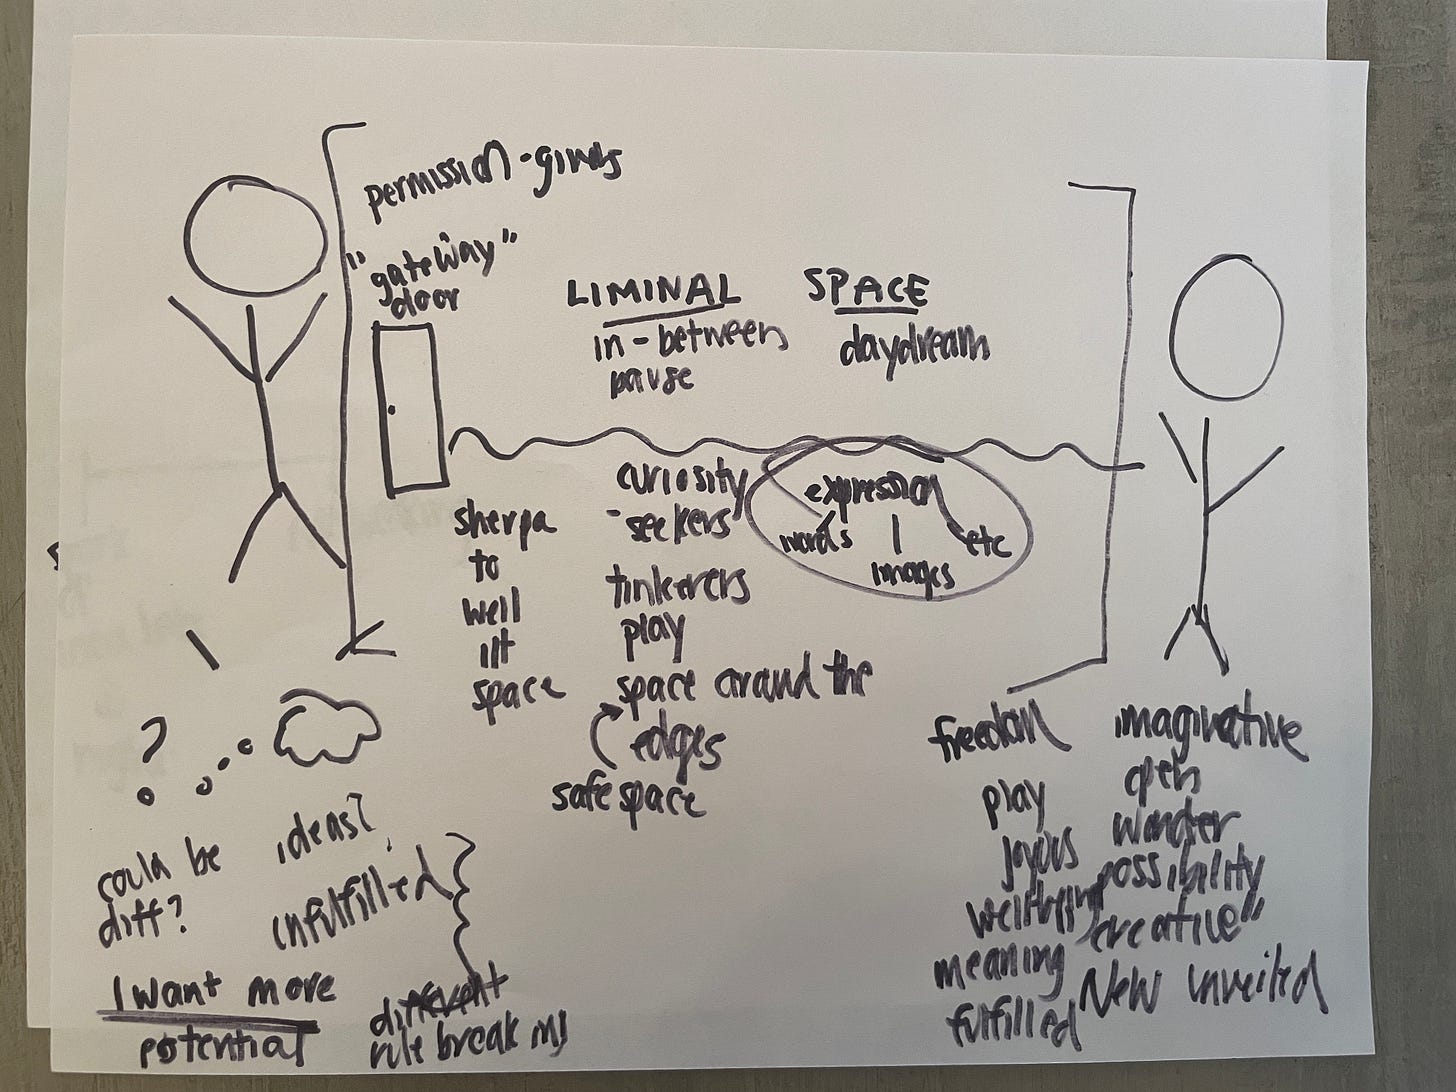 permission-giving
"gateway"
door
LIMINAL SPACE
in-between
pause
daydream
sherpa
to
well
lit
space
curiosity
-seekers
tinkerers
play
space around the
edges
safe space
expression
words
images
etc
?
could be
diff?
ideas?
unfulfilled
I want more
potential
different
rule breaking
freedom
play
joyous
wellbeing
meaning
fulfilled
imaginative
open
wonder
possibility
"creative"
New unveiled